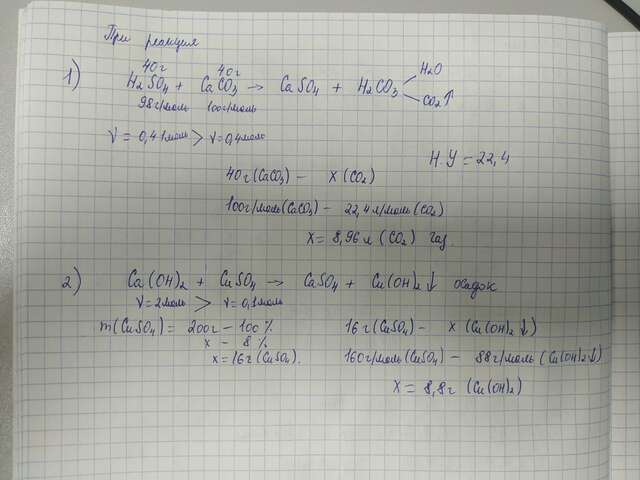 При реакция
40г 40г
1) H₂SO₄ + CaCO₃ → CaSO₄ + H₂CO₃
H₂O
CO₂↑
98г/моль 100г/моль
ν = 0,41моль > ν = 0,4моль
Н.У = 22,4
40г (CaCO₃) – x (CO₂)
100г/моль (CaCO₃) – 22,4л/моль (CO₂)
x = 8,96л (CO₂) газ.
2) Ca(OH)₂ + CuSO₄ → CaSO₄ + Cu(OH)₂↓ осадок
ν = 2моль > ν = 0,1моль
m(CuSO₄) = 200г – 100%
x – 8%
x = 16г (CuSO₄).
16г (CuSO₄) – x (Cu(OH)₂↓)
160г/моль (CuSO₄) – 88г/моль (Cu(OH)₂↓)
x = 8,8г (Cu(OH)₂)